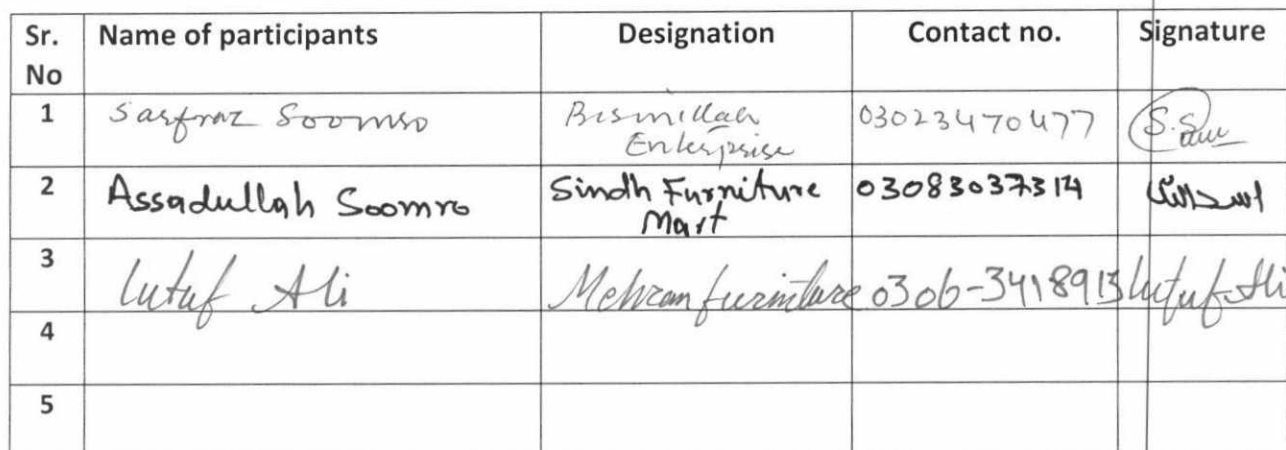 Sr. No Name of participants Designation Contact no. Signature
1 Sarfraz Soomro Bismillah Enterprise 03023470477
2 Assadullah Soomro Sindh Furniture Mart 03083037314 اسداللہ
3 lutuf Ali Mehran furniture 0306-3418913 lutuf Ali
4
5